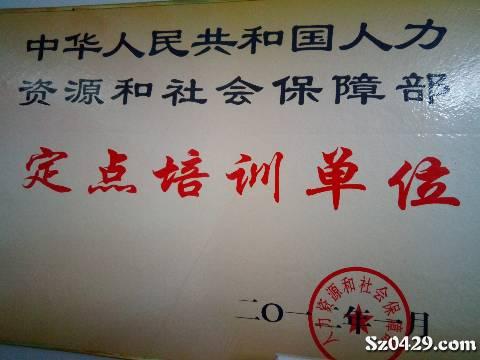 中华人民共和国人力
资源和社会保障部
定点培训单位
人力资源和社会保障
二〇一二年一月
Sz0429.com